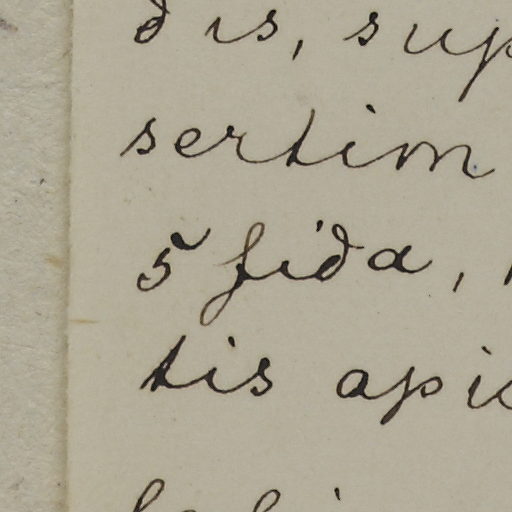 dis, sup
sertim
5 fida,
tis apic